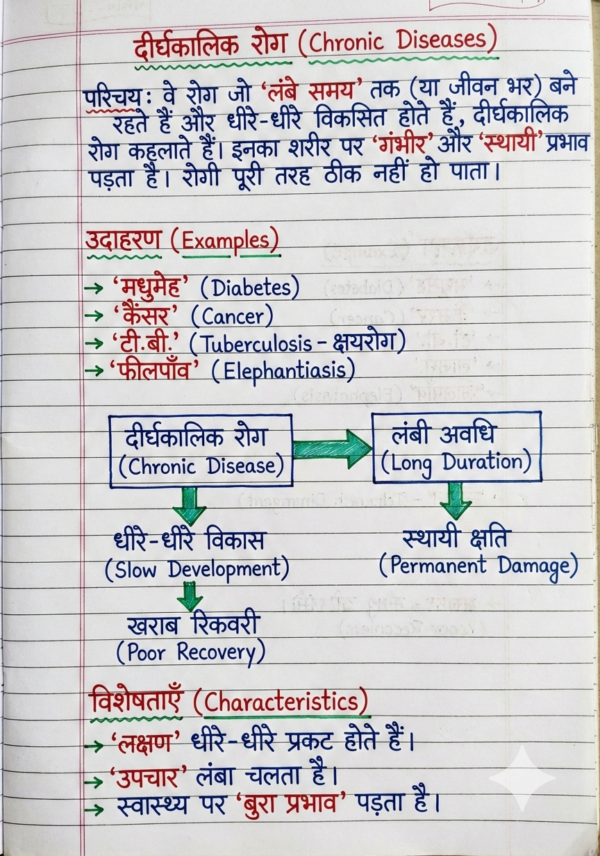 दीर्घकालिक रोग (Chronic Diseases)
परिचय: वे रोग जो 'लंबे समय' तक (या जीवन भर) बने
रहते हैं और धीरे-धीरे विकसित होते हैं, दीर्घकालिक
रोग कहलाते हैं। इनका शरीर पर 'गंभीर' और 'स्थायी' प्रभाव
पड़ता है। रोगी पूरी तरह ठीक नहीं हो पाता।
उदाहरण (Examples)
→ 'मधुमेह' (Diabetes)
→ 'कैंसर' (Cancer)
→ 'टी.बी.' (Tuberculosis - क्षयरोग)
→ 'फीलपाँव' (Elephantiasis)
दीर्घकालिक रोग
(Chronic Disease)
लंबी अवधि
(Long Duration)
धीरे-धीरे विकास
(Slow Development)
स्थायी क्षति
(Permanent Damage)
खराब रिकवरी
(Poor Recovery)
विशेषताएँ (Characteristics)
→ 'लक्षण' धीरे-धीरे प्रकट होते हैं।
→ 'उपचार' लंबा चलता है।
→ स्वास्थ्य पर 'बुरा प्रभाव' पड़ता है।